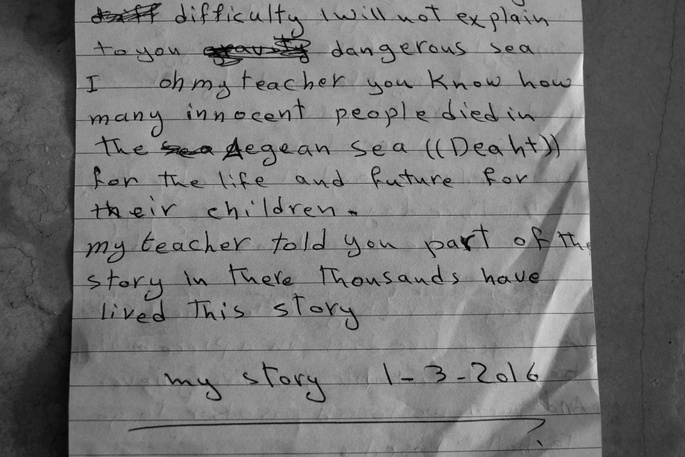 difficulty I will not explain
to you dangerous sea
I oh my teacher you know how
many innocent people died in
the Aegean sea ((Deaht))
for the life and future for
their children.
my teacher told you part of the
story in there thousands have
lived This story
my story 1-3-2016
?